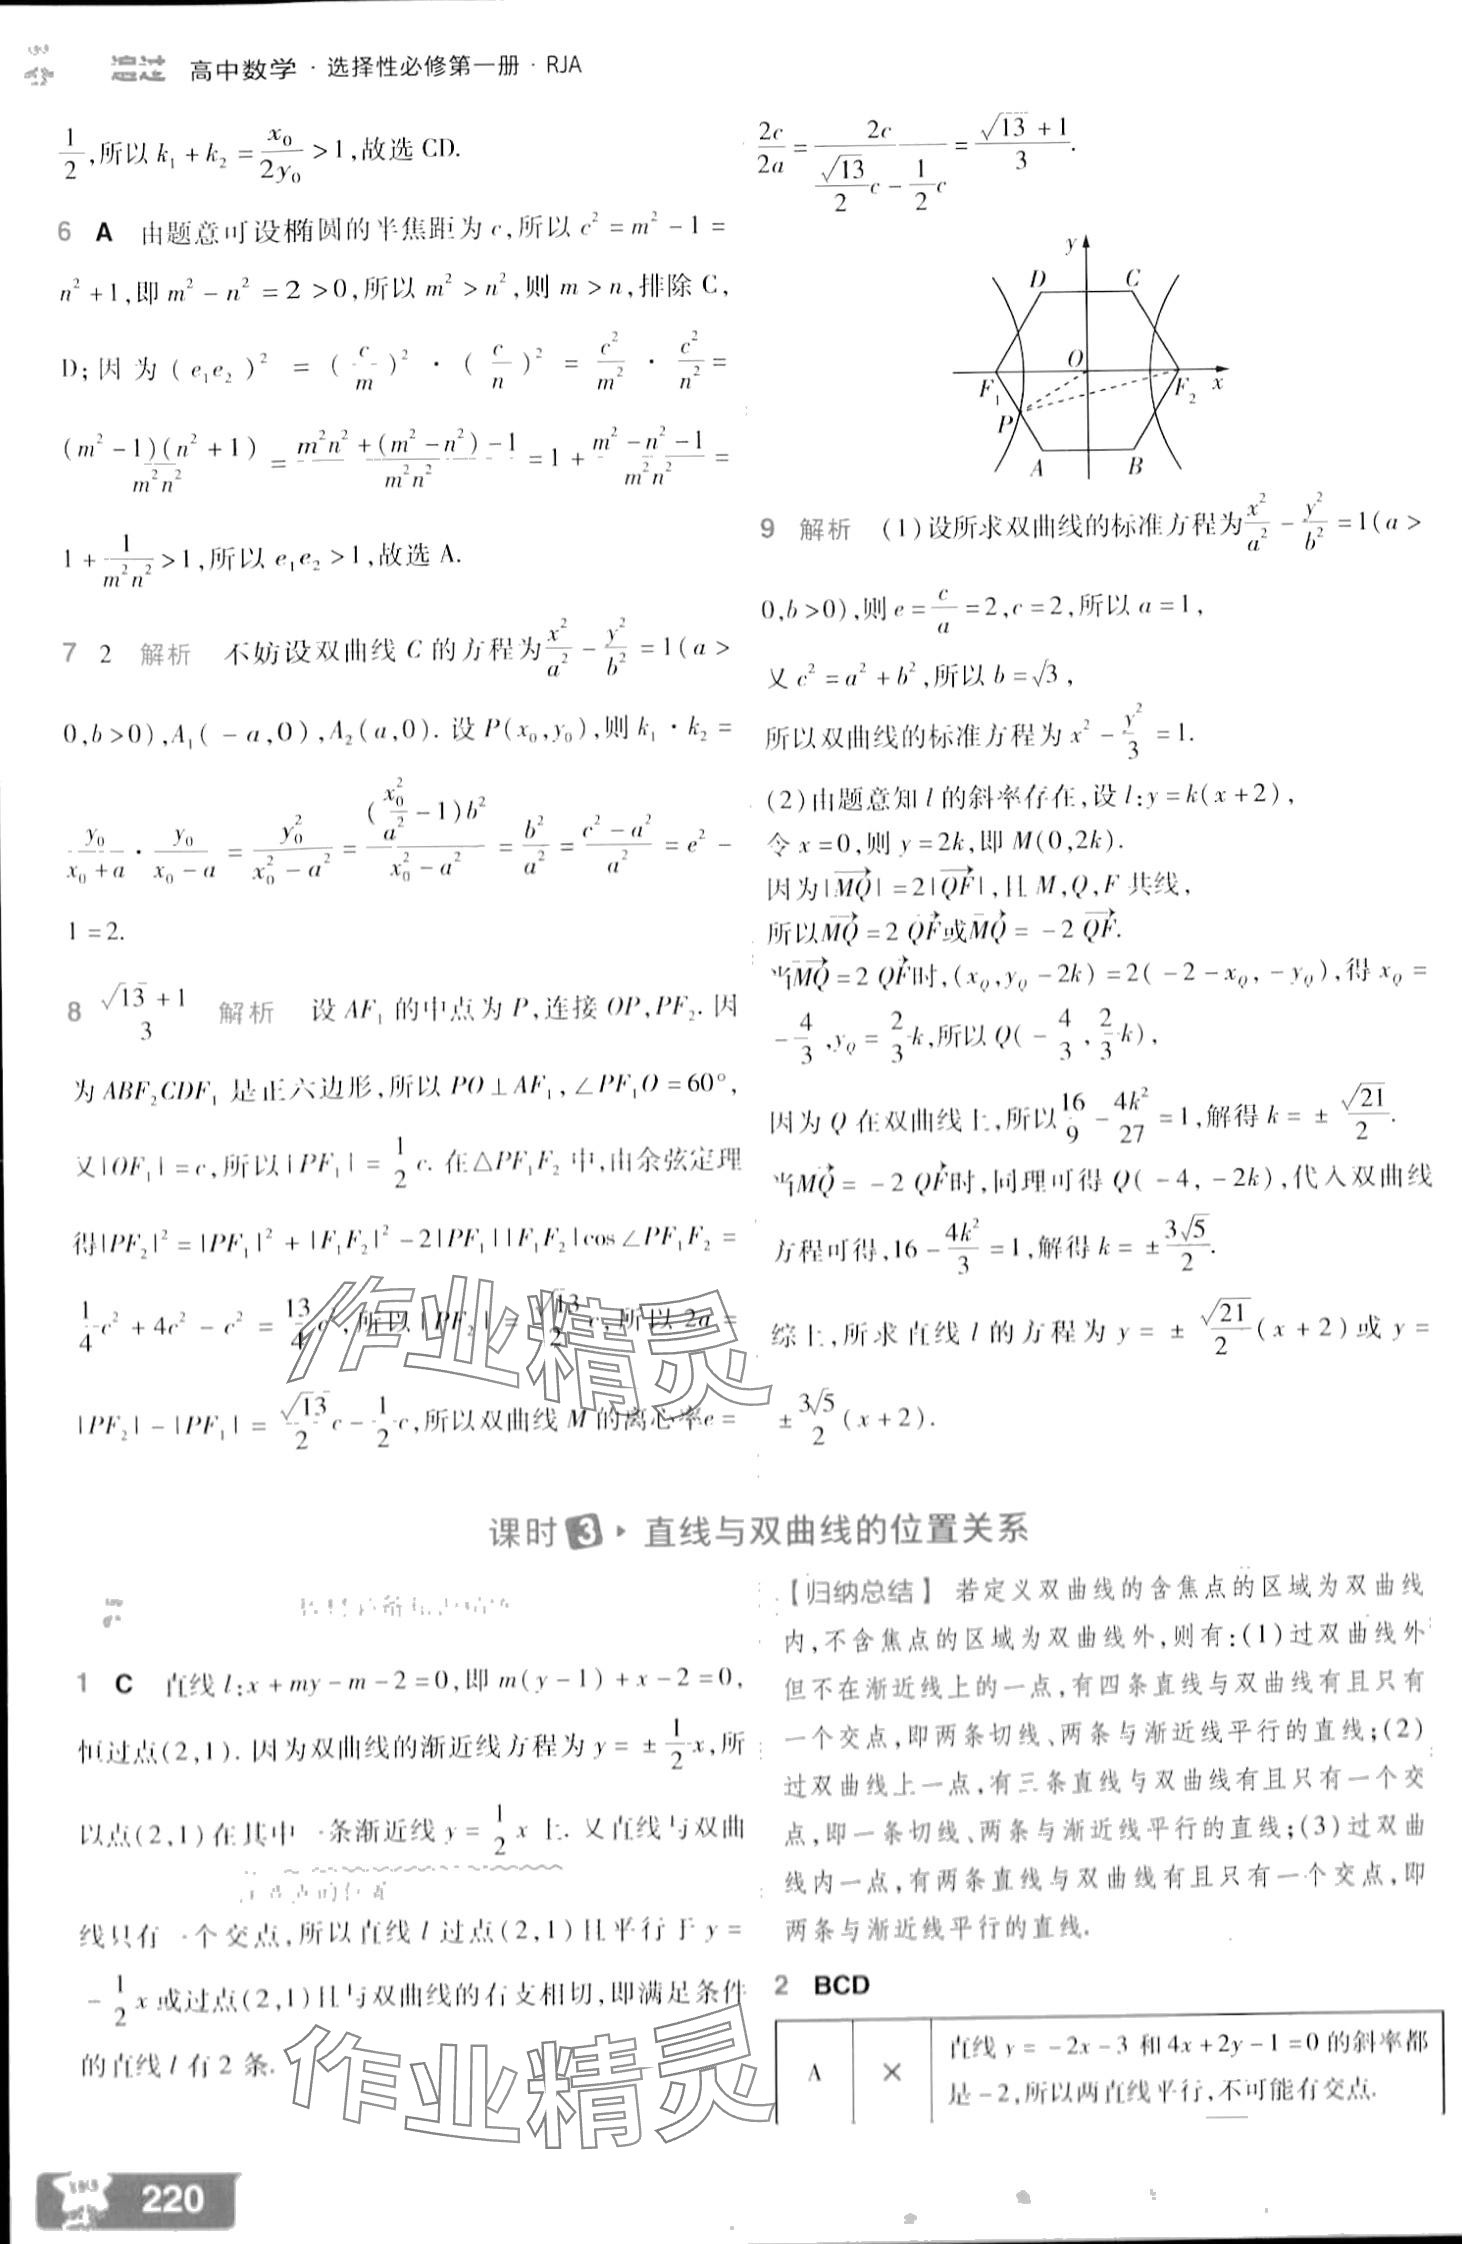 追过 高中数学·选择性必修第一册·RJA
1/2,所以 k₁+k₂=x₀/(2y₀)>1,故选 CD.
6 A 由题意可设椭圆的半焦距为 c,所以 c²=m²-1=
n²+1,即 m²-n²=2>0,所以 m²>n²,则 m>n,排除 C,
D;因为(e₁e₂)²=(c/m)²·(c/n)²=c²/m²·c²/n²=
(m²-1)(n²+1)/(m²n²)=(m²n²+(m²-n²)-1)/(m²n²)=1+(m²-n²-1)/(m²n²)=
1+1/(m²n²)>1,所以 e₁e₂>1,故选 A.
7 2 解析 不妨设双曲线 C 的方程为x²/a²-y²/b²=1(a>
0,b>0),A₁(-a,0),A₂(a,0). 设 P(x₀,y₀),则 k₁·k₂=
y₀/(x₀+a)·y₀/(x₀-a)=y₀²/(x₀²-a²)=(x₀²/a²-1)b²/(x₀²-a²)=b²/a²=(c²-a²)/a²=e²-
1=2.
8 (√13+1)/3 解析 设 AF₁ 的中点为 P,连接 OP,PF₂. 因
为 ABF₂CDF₁ 是正六边形,所以 PO⊥AF₁,∠PF₁O=60°,
又|OF₁|=c,所以|PF₁|=1/2 c. 在△PF₁F₂ 中,由余弦定理
得|PF₂|²=|PF₁|²+|F₁F₂|²-2|PF₁||F₁F₂|cos∠PF₁F₂=
1/4 c²+4c²-c²=13/4 c²,所以|PF₂|=√13/2 c,所以 2a=
|PF₂|-|PF₁|=√13/2 c-1/2 c,所以双曲线 M 的离心率e=
2c/2a=2c/(√13/2 c-1/2 c)=(√13+1)/3.
y
D C
O
F₁ F₂ x
P
A B
9 解析 (1)设所求双曲线的标准方程为x²/a²-y²/b²=1(a>
0,b>0),则 e=c/a=2,c=2,所以 a=1,
又 c²=a²+b²,所以 b=√3,
所以双曲线的标准方程为 x²-y²/3=1.
(2)由题意知 l 的斜率存在,设 l:y=k(x+2),
令 x=0,则 y=2k,即 M(0,2k).
因为|MQ→|=2|QF→|,且 M,Q,F 共线,
所以MQ→=2 QF→或MQ→=-2 QF→.
当MQ→=2 QF→时,(x_Q,y_Q-2k)=2(-2-x_Q,-y_Q),得 x_Q=
-4/3,y_Q=2/3 k,所以 Q(-4/3,2/3 k),
因为 Q 在双曲线上,所以16/9-4k²/27=1,解得 k=±√21/2.
当MQ→=-2 QF→时,同理可得 Q(-4,-2k),代入双曲线
方程可得,16-4k²/3=1,解得 k=±3√5/2.
综上,所求直线 l 的方程为 y=±√21/2(x+2)或 y=
±3√5/2(x+2).
课时3 直线与双曲线的位置关系
1 C 直线 l:x+my-m-2=0,即 m(y-1)+x-2=0,
恒过点(2,1). 因为双曲线的渐近线方程为 y=±1/2 x,所
以点(2,1)在其中一条渐近线 y=1/2 x 上. 又直线与双曲
线只有一个交点,所以直线 l 过点(2,1)且平行于 y=
-1/2 x 或过点(2,1)且与双曲线的右支相切,即满足条件
的直线 l 有 2 条.
【归纳总结】若定义双曲线的含焦点的区域为双曲线
内,不含焦点的区域为双曲线外,则有:(1)过双曲线外
但不在渐近线上的一点,有四条直线与双曲线有且只有
一个交点,即两条切线、两条与渐近线平行的直线;(2)
过双曲线上一点,有三条直线与双曲线有且只有一个交
点,即一条切线、两条与渐近线平行的直线;(3)过双曲
线内一点,有两条直线与双曲线有且只有一个交点,即
两条与渐近线平行的直线.
2 BCD
A × 直线 y=-2x-3 和 4x+2y-1=0 的斜率都
是-2,所以两直线平行,不可能有交点.
作业精灵
作业精灵
220